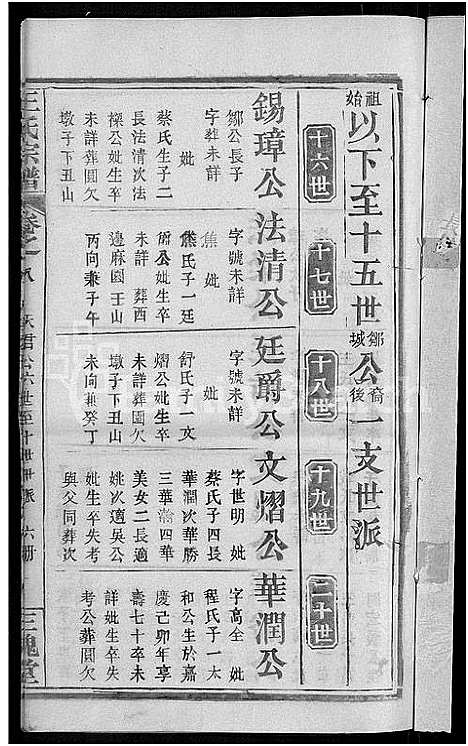 始祖以下至十五世鄒城公後裔一支世派
十六世
十七世
十八世
十九世
二十世
錫璋公
鄒公長子
字葬未詳
妣
蔡氏生子二
長法清次法
操公妣生卒
未詳葬圓欠
墩子下丑山
法清公
字號未詳
焦妣
熊氏子一廷
爵公妣生卒
未詳葬西
邊麻園壬山
丙向兼子午
廷爵公
字號未詳
妣
舒氏子一文
熠公妣生卒
未詳葬圓欠
墩子下丑山
未向兼癸丁
文熠公
字世明妣
蔡氏子四長
華潤次華勝
三華瀚四華
美女二長適
姚次適吳公
妣生卒失考
與父同葬次
華潤公
字高全妣
程氏子一太
和公生於嘉
慶己卯年享
壽七十卒未
詳妣生卒失
考公葬圓欠
王氏宗譜
六世至十世世派
三槐堂